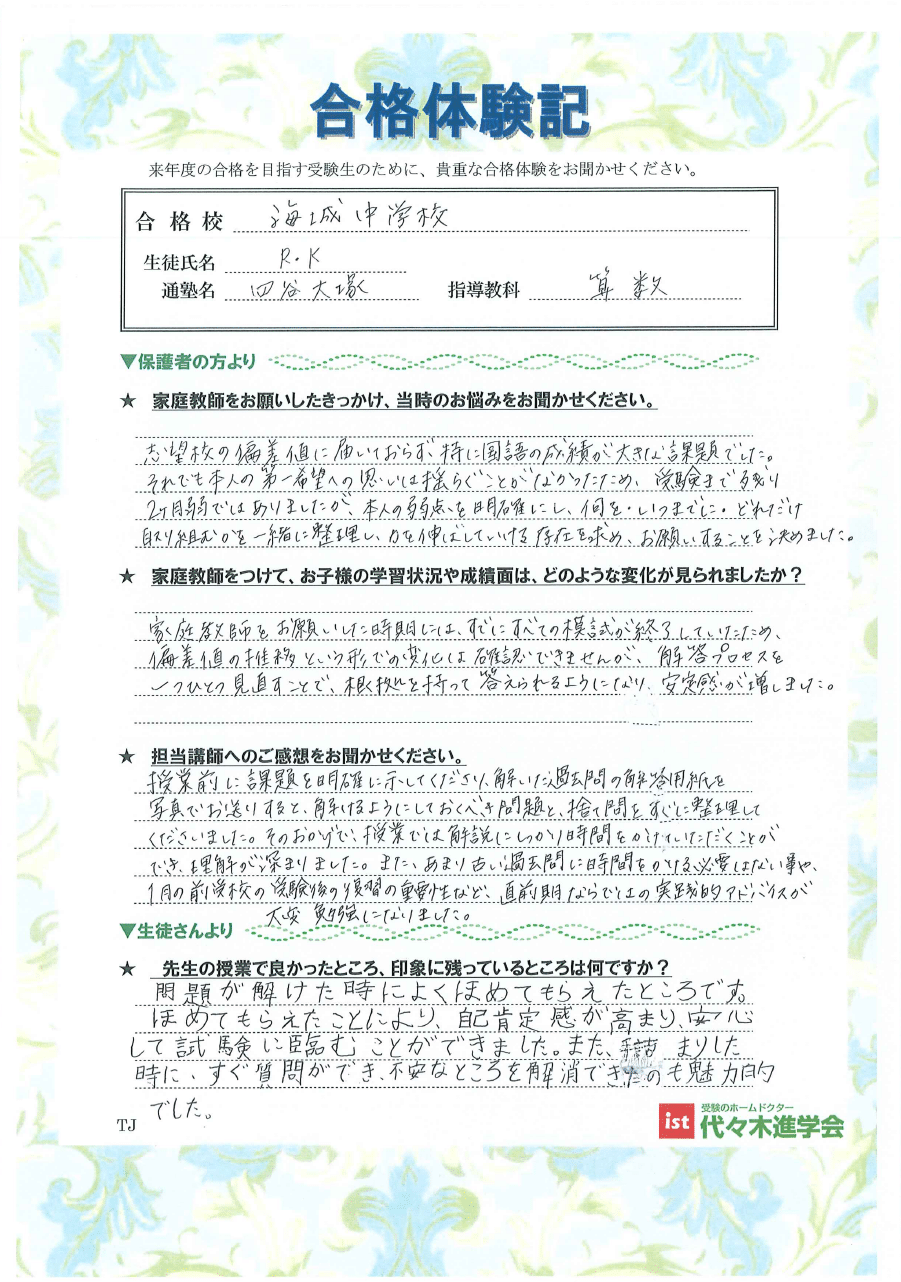 合格体験記
来年度の合格を目指す受験生のために、貴重な合格体験をお聞かせください。
合格校 海城中学校
生徒氏名 R.K
通塾名 四谷大塚 指導教科 算数
▼保護者の方より
★ 家庭教師をお願いしたきっかけ、当時のお悩みをお聞かせください。
志望校の偏差値に届いておらず、特に国語の成績が大きな課題でした。
それでも本人の第一希望への思いは揺らぐことがなかったため、受験まで残り
2ヶ月弱ではありましたが、本人の弱点を明確にし、何を・いつまでに・どれだけ
取り組むかを一緒に整理し、力を伸ばしていける存在を求め、お願いすることを決めました。
★ 家庭教師をつけて、お子様の学習状況や成績面は、どのような変化が見られましたか?
家庭教師をお願いした時期には、すでにすべての模試が終了していたため、
偏差値の推移という形での変化は確認できませんが、解答プロセスを
一つひとつ見直すことで、根拠を持って答えられるようになり、安定感が増しました。
★ 担当講師へのご感想をお聞かせください。
授業前に課題を明確に示してくださり、解いた過去問の解答用紙を
写真でお送りすると、解けるようにしておくべき問題と、捨て問をすぐに整理して
くださいました。そのおかげで、授業では解説にしっかり時間をかけていただくことが
でき、理解が深まりました。また、あまり古い過去問に時間をかける必要はない事や、
1月の前学校の受験後の復習の重要性など、直前期ならではの実践的アドバイスが
大変勉強になりました。
▼生徒さんより
★ 先生の授業で良かったところ、印象に残っているところは何ですか?
問題が解けた時によくほめてもらえたところです。
ほめてもらえたことにより、自己肯定感が高まり、安心
して試験に臨むことができました。また、詰まりした
時に、すぐ質問ができ、不安なところを解消できたのも魅力的
でした。
TJ
ist 受験のホームドクター
代々木進学会